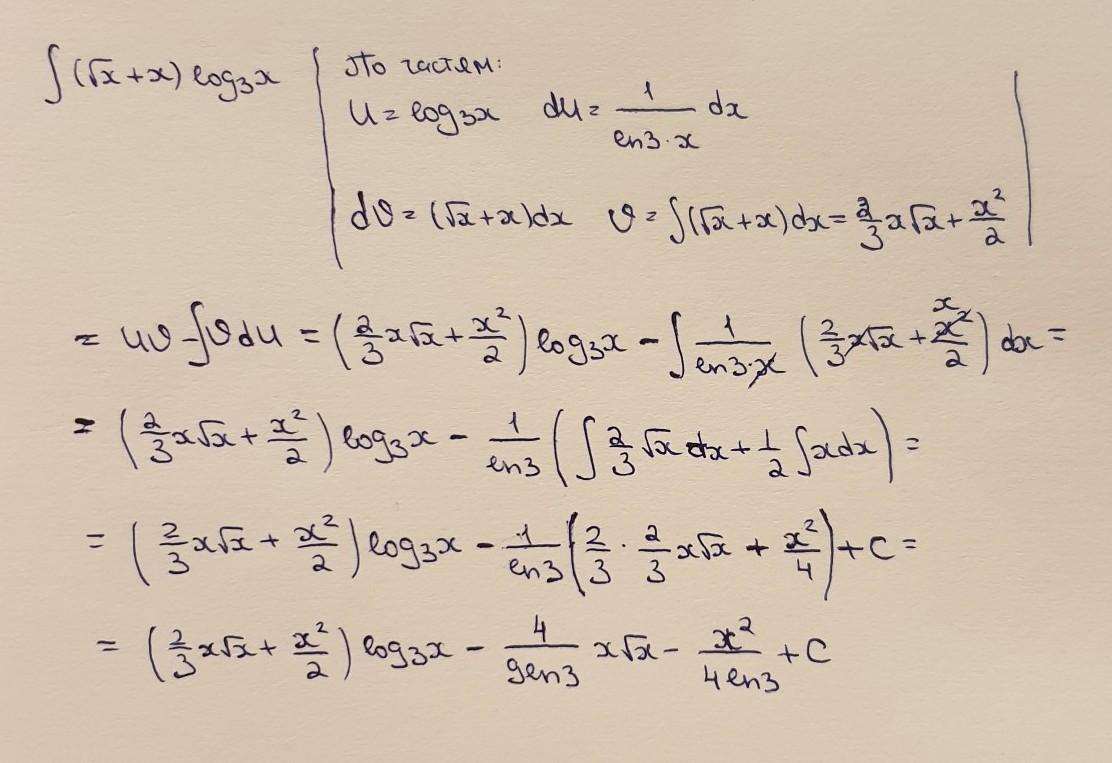 ∫(√x + x) log₃x | По частям:
u = log₃x du = 1/(ln3·x) dx
dv = (√x + x)dx v = ∫(√x + x)dx = 2/3 x√x + x²/2
= uv - ∫vdu = (2/3 x√x + x²/2) log₃x - ∫ 1/(ln3·x) (2/3 x√x + x²/2) dx =
= (2/3 x√x + x²/2) log₃x - 1/ln3 (∫ 2/3 √x dx + 1/2 ∫xdx) =
= (2/3 x√x + x²/2) log₃x - 1/ln3 (2/3 · 2/3 x√x + x²/4) + C =
= (2/3 x√x + x²/2) log₃x - 4/(9ln3) x√x - x²/(4ln3) + C